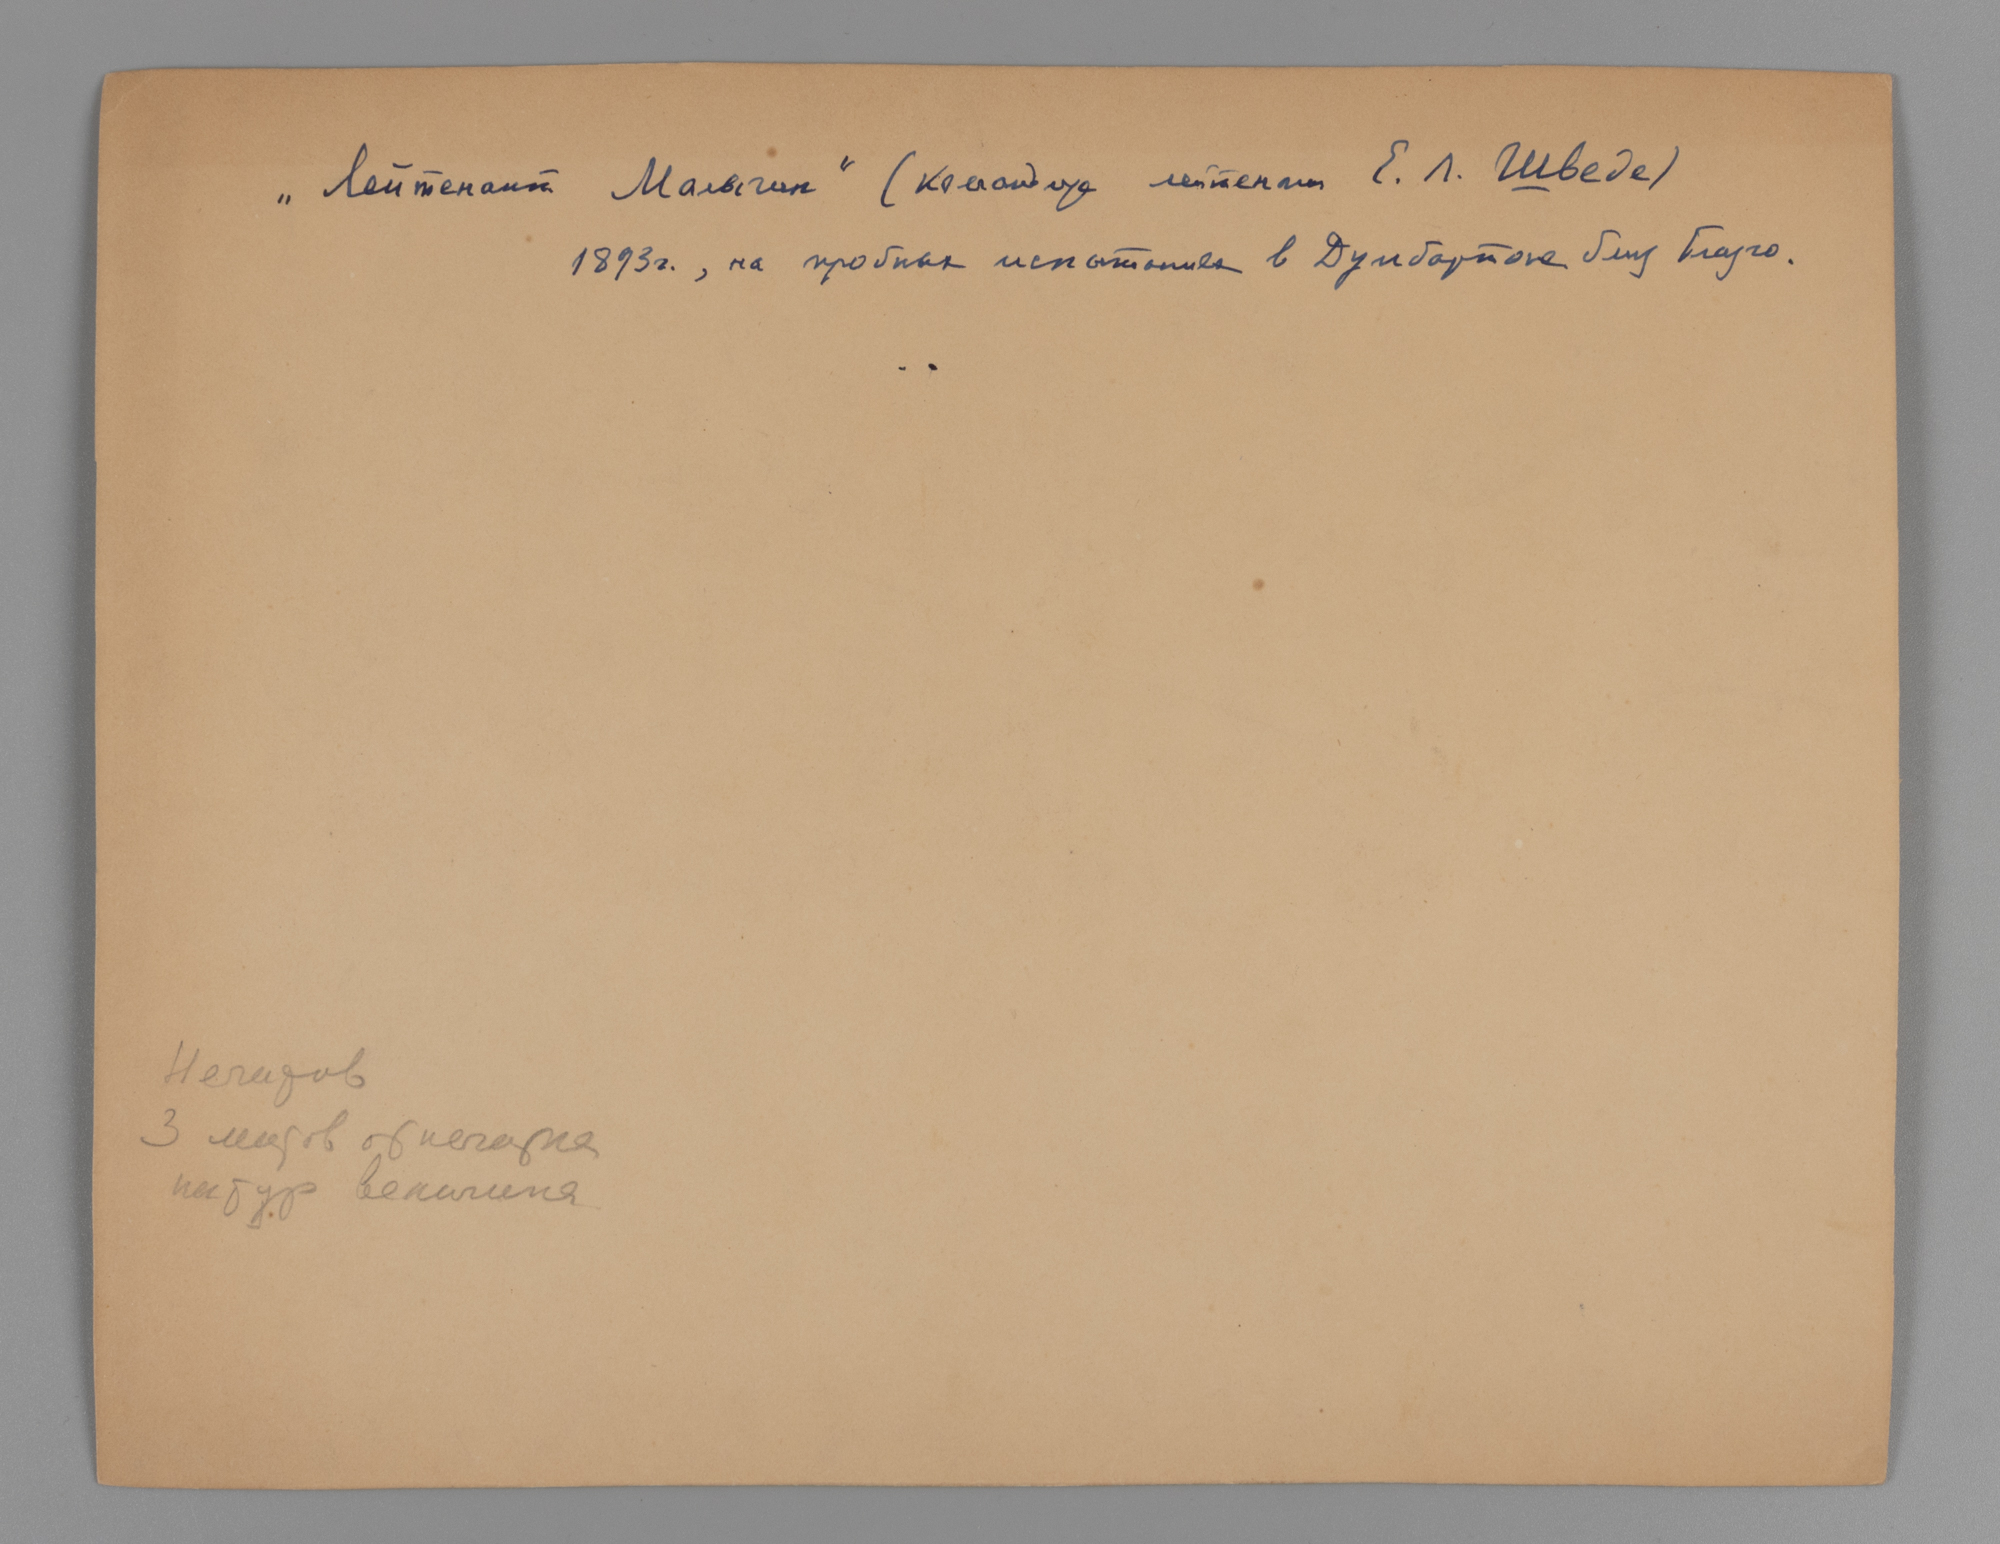 „Лейтенант Малыгин“ (командир лейтенант Е. Л. Шведе)
1893г., на пробных испытаниях в Думбартоне близ Глазго.
3 отпечатка
натур величина